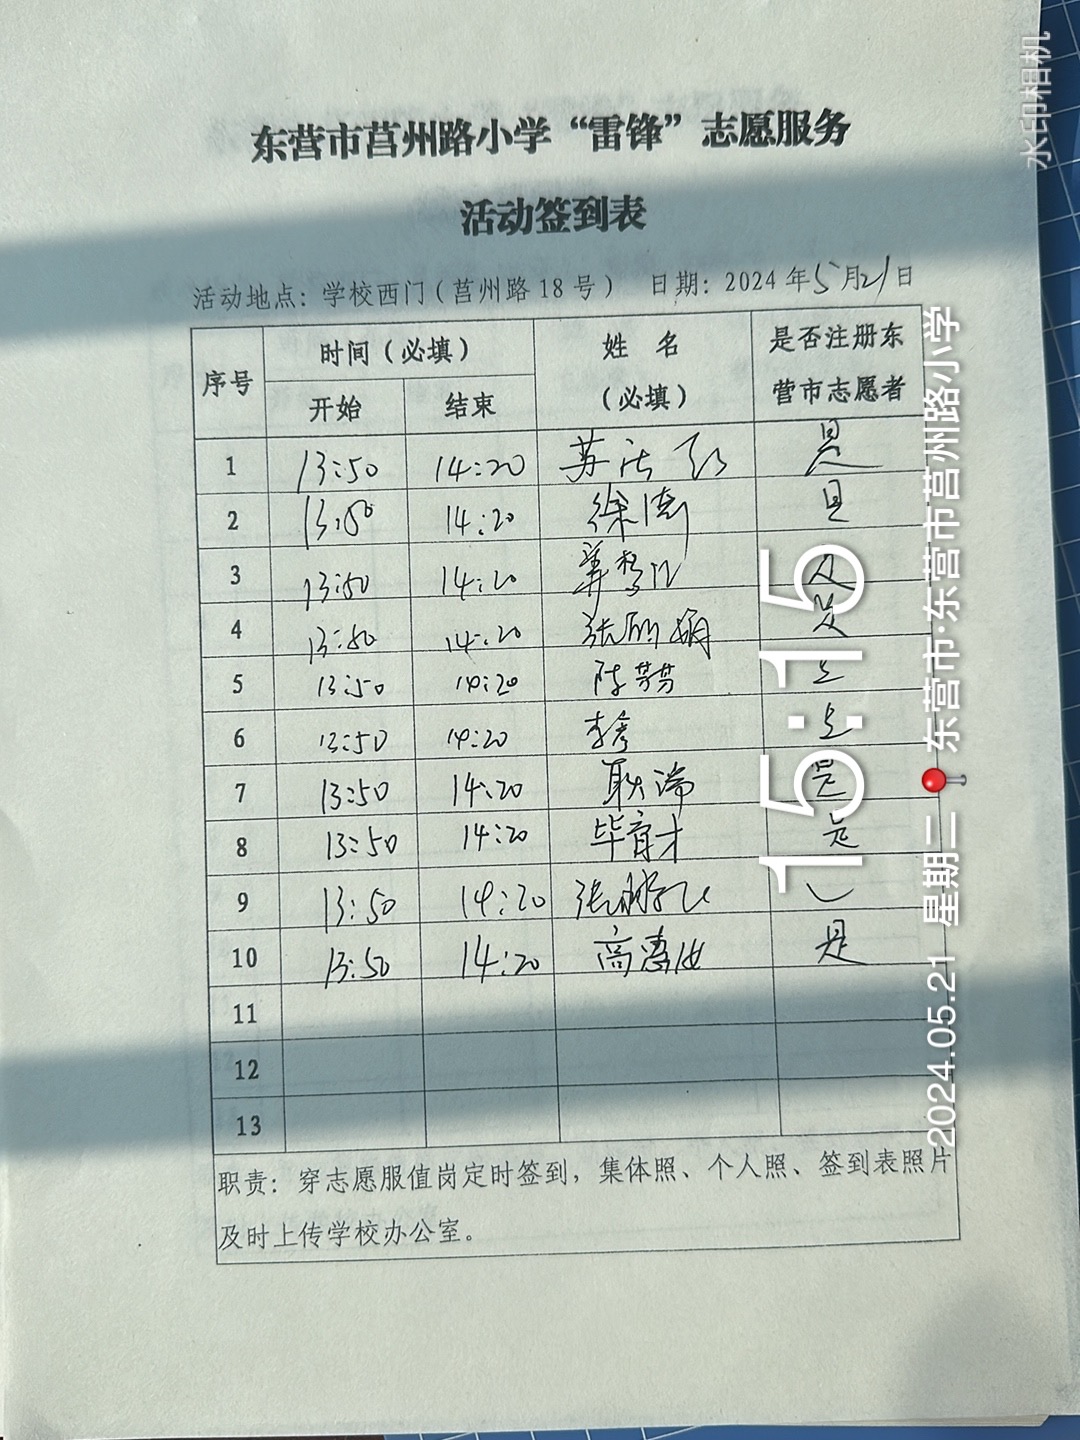 东营市莒州路小学“雷锋”志愿服务
活动签到表
活动地点：学校西门（莒州路18号） 日期：2024年5月21日
序号 时间（必填） 姓名（必填） 是否注册东营市志愿者
开始 结束
1 13:50 14:20 苏 是
2 13:50 14:20 徐 是
3 13:50 14:20 是
4 13:50 14:20 张 娟 是
5 13:50 14:20 陈芳芳 是
6 13:50 14:20 李彦 是
7 13:50 14:20 耿瑞 是
8 13:50 14:20 毕育才 是
9 13:50 14:20 张鹏飞
10 13:50 14:20 高惠 是
11
12
13
职责：穿志愿服值岗定时签到，集体照、个人照、签到表照片
及时上传学校办公室。
水印相机
15:15
2024.05.21 星期二 东营市·东营市莒州路小学